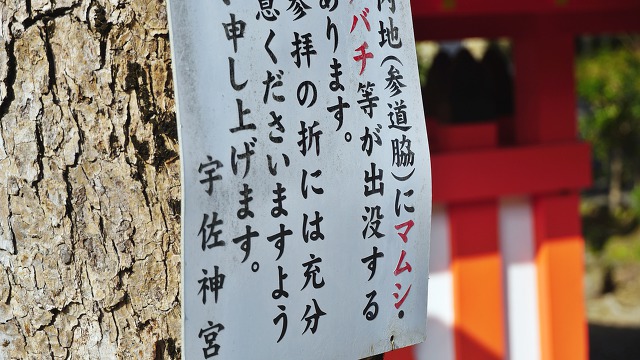 内地(参道脇)にマムシ・
バチ等が出没する
あります。
参拝の折には充分
息くださいますよう
申し上げます。
宇佐神宮